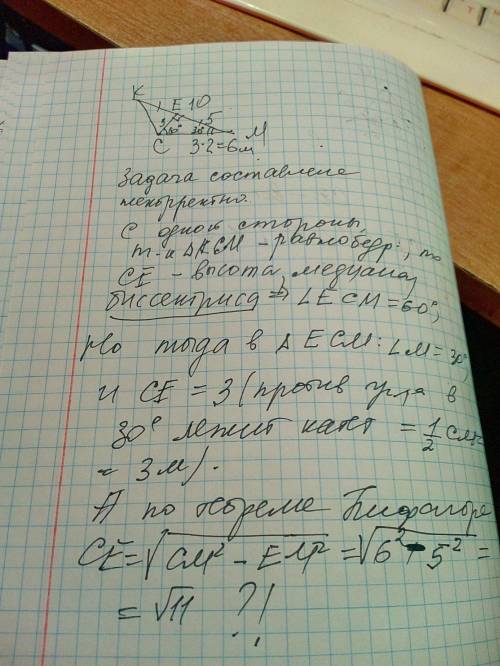 K
E 10
5
3 60° 30°
M
C 3·2=6м
Задача составлена
некорректно.
С одной стороны,
т.к ΔKCM - равнобедр., то
CE - высота, медиана,
биссектриса ⇒ ∠ECM=60°,
Но тогда в ΔECM: ∠M=30°,
и CE = 3 (против угла в
30° лежит катет = 1/2 CM
= 3м).
А по теореме Пифагора
CE=√CM² - EM² = √6² - 5² =
= √11 ?!